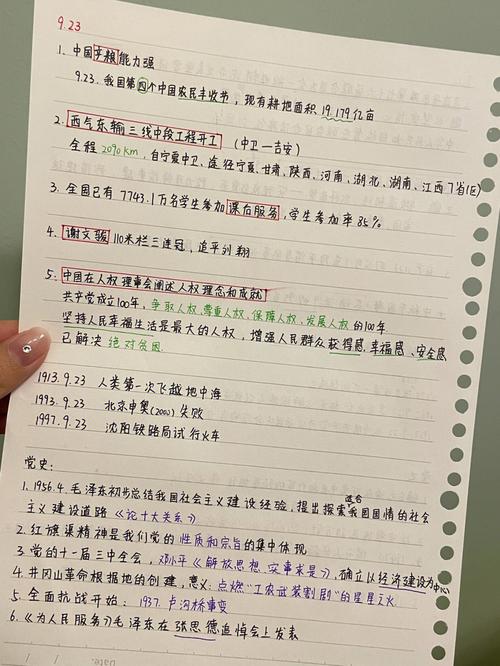 9.23
1. 中国亨粮能力强
9.23. 我国第四个中国农民丰收节，现有耕地面积 19.179亿亩
2. 西气东输三线中段工程开工 (中卫—吉安)
全程 2090km. 自宁夏中卫、途径宁夏、甘肃、陕西、河南、湖北、湖南、江西 7省(区)
3. 全国已有 7743.1万名学生参加课后服务，学生参加率 85%
4. 谢文骏 110米栏三连冠，追平刘翔
5. 中国在人权理事会阐述人权理念和成就
共产党成立100年，争取人权、尊重人权、保障人权、发展人权的100年
坚持人民幸福生活是最大的人权，增强人民群众获得感、幸福感、安全感
已解决 绝对贫困
1913.9.23 人类第一次飞越地中海
1993.9.23 北京申奥(2000)失败
1997.9.23 沈阳铁路局试行火车
党史：
1. 1956.4. 毛泽东初步总结我国社会主义建设经验，提出探索适合我国国情的社会
主义建设道路《论十大关系》
2. 红旗渠精神是我们党的性质和宗旨的集中体现
3. 党的十一届三中全会，邓小平《解放思想，实事求是》，确立以经济建设为中心
4. 井冈山革命根据地的创建，意义：点燃“工农武装割剧”的星星之火
5. 全面抗战开始：1937. 卢沟桥事变
6. 《为人民服务》毛泽东在张思德追悼会上发表
Date